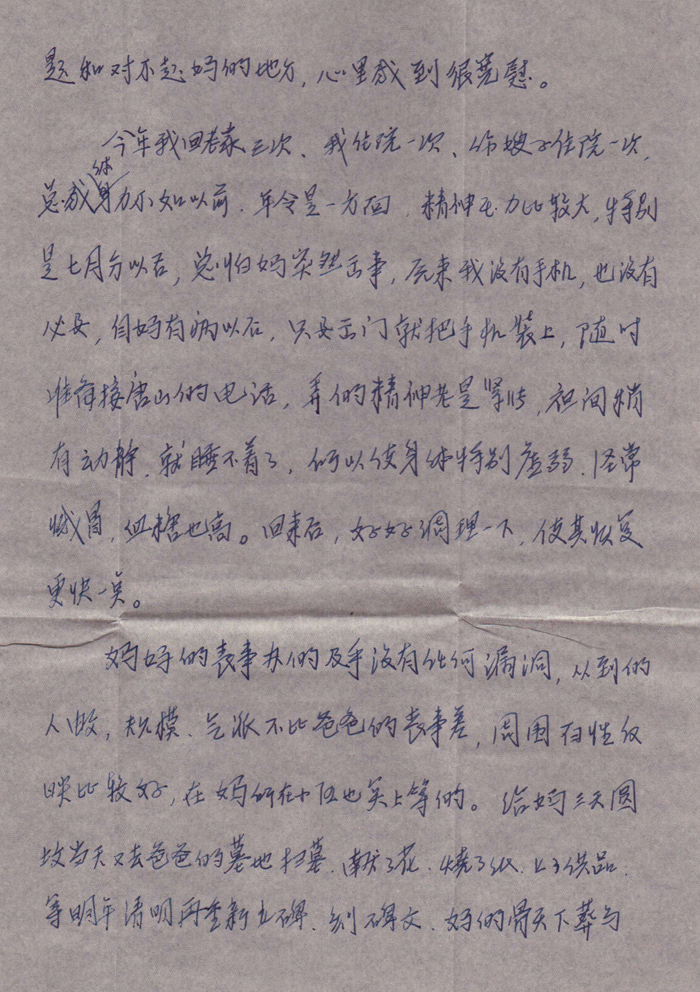 题和对不起妈的地方,心里感到很宽慰。
今年我回老家三次、我住院一次、你嫂子住院一次,
总感体力不如以前.年令是一方面,精神压力比较大,特别
是七月分以后,总怕妈突然出事,原来我没有手机,也没有
必要,自妈有病以后,只要出门就把手机装上,随时
准备接唐山的电话,弄的精神老是紧张,夜间稍
有动静.就睡不着了,所以使身体特别虚弱.经常
感冒,血糖也高。回来后,好好调理一下,使其恢复
更快一点。
妈妈的丧事办的几乎没有任何漏洞,从到的
人数,规模、气派不比爸爸的丧事差,周围百姓反
映比较好,在妈所在小区也算上等的。给妈三天圆
坟当天又去爸爸的墓地扫墓.献了花.烧了纸.上了供品.
等明年清明再重新立碑、刻碑文.妈的骨灰下葬与